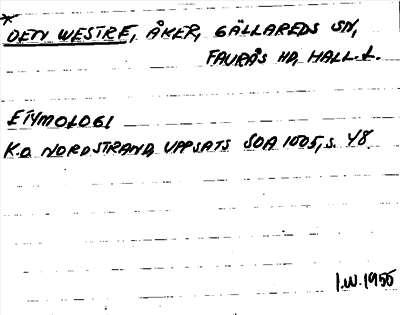 *
DETN WESTRE, ÅKER, GÄLLAREDS SN,
FAURÅS HD, HALL. L.
ETYMOLOGI
K.O NORDSTRAND, UPPSATS SOA 1005, S. 48.
I.W. 1955